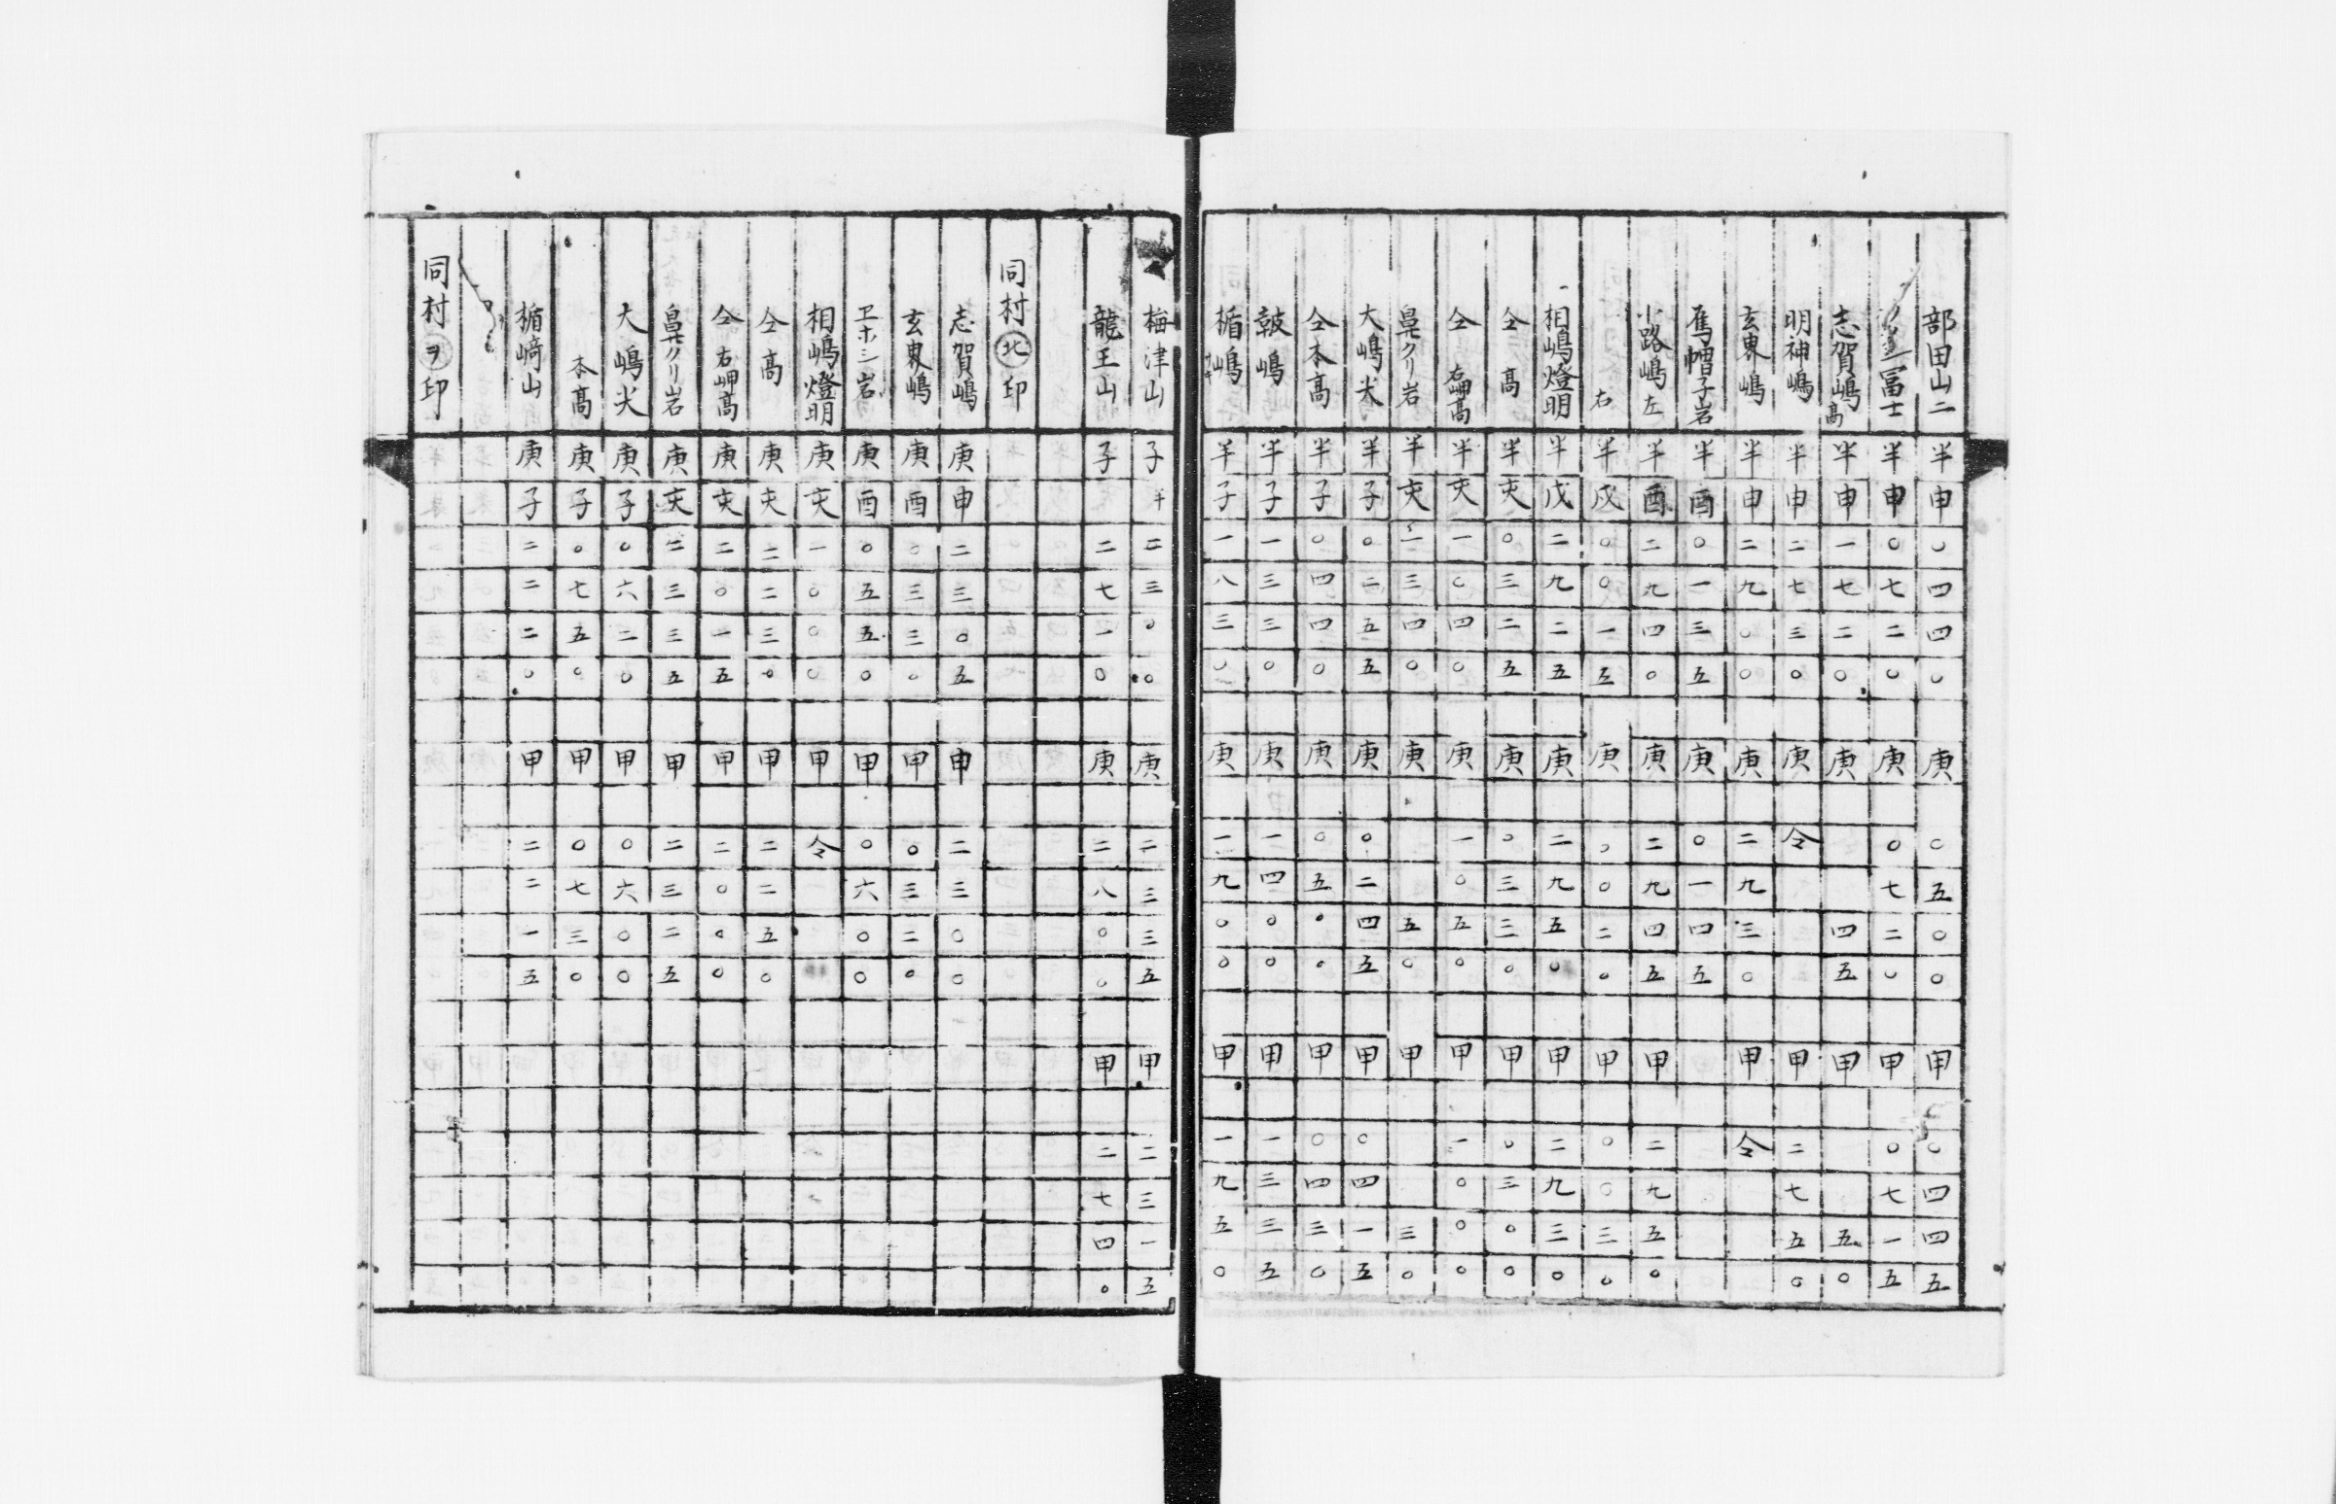 部田山二 半申〇四四〇 庚〇五〇〇 甲〇四四五
冨士 半申〇七二〇 庚〇七二〇 甲〇七一五
志賀嶋高 半申一七二〇 庚四五 甲五〇
明神嶋 半申二七三〇 庚仝 甲二七五〇
玄東嶋 半申二九〇〇 庚二九三〇 甲仝
雁帽子岩 半酉〇一三五 庚〇一四五
小路嶋左 半酉二九四〇 庚二九四五 甲二九五〇
右 半戌〇〇一五 庚〇〇二〇 甲〇〇三〇
相嶋燈明 半戌二九二五 庚二九五〇 甲二九三〇
仝高 半亥〇三二五 庚〇三三〇 甲〇三〇〇
仝右岬高 半亥一〇四〇 庚一〇五〇 甲一〇〇〇
鼻クリ岩 半亥一三四〇 庚五〇 甲三〇
大嶋米 半子〇二五五 庚〇二四五 甲〇四一五
仝本高 半子〇四四〇 庚〇五〇〇 甲〇四三〇
皷嶋 半子一三三〇 庚一四〇〇 甲一三三五
楯嶋 半子一八三〇 庚一九〇〇 甲一九五〇
梅津山 子半二三〇〇 庚二三三五 甲二三一五
龍王山 子二七一〇 庚二八〇〇 甲二七四〇
同村北印
志賀嶋 庚申二三〇五 甲二三〇〇
玄東嶋 庚酉〇三三〇 甲〇三二〇
ヱホシ岩 庚酉〇五五〇 甲〇六〇〇
相嶋燈明 庚亥一〇〇〇 甲令
仝高 庚亥二二三〇 甲二二五〇
仝右岬高 庚亥二〇一五 甲二〇〇〇
鼻クリ岩 庚亥二三三五 甲二三二五
大嶋米 庚子〇六二〇 甲〇六〇〇
本高 庚子〇七五〇 甲〇七三〇
楯﨑山 庚子二二二〇 甲二二一五
同村ヲ印